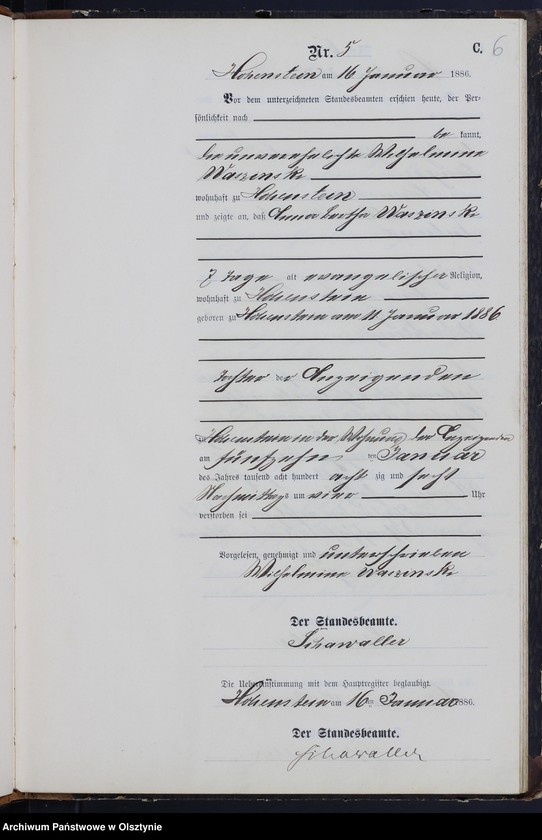 Nr. 5
C. 6
Hohenstein am 16 Januar 1886.
Vor dem unterzeichneten Standesbeamten erschien heute, der Per-
sönlichkeit nach
be kannt,
die unverehelichte Wilhelmine
Waszinski
wohnhaft zu Hohenstein
und zeigte an, daß Anna Bertha Waszinski
7 Tage alt evangelischer Religion,
wohnhaft zu Hohenstein
geboren zu Hohenstein am 11 Januar 1886
Tochter der Anzeigenden
zu Hohenstein in der Wohnung der Anzeigenden
am fünfzehn ten Januar
des Jahres tausend acht hundert acht zig und sechs
Nachmittags um vier Uhr
verstorben sei
Vorgelesen, genehmigt und unterschrieben
Wilhelmine Waszinski
Der Standesbeamte.
Schawaller
Die Uebereinstimmung mit dem Hauptregister beglaubigt.
Hohenstein am 16 ten Januar 1886.
Der Standesbeamte.
Schawaller
Archiwum Państwowe w Olsztynie